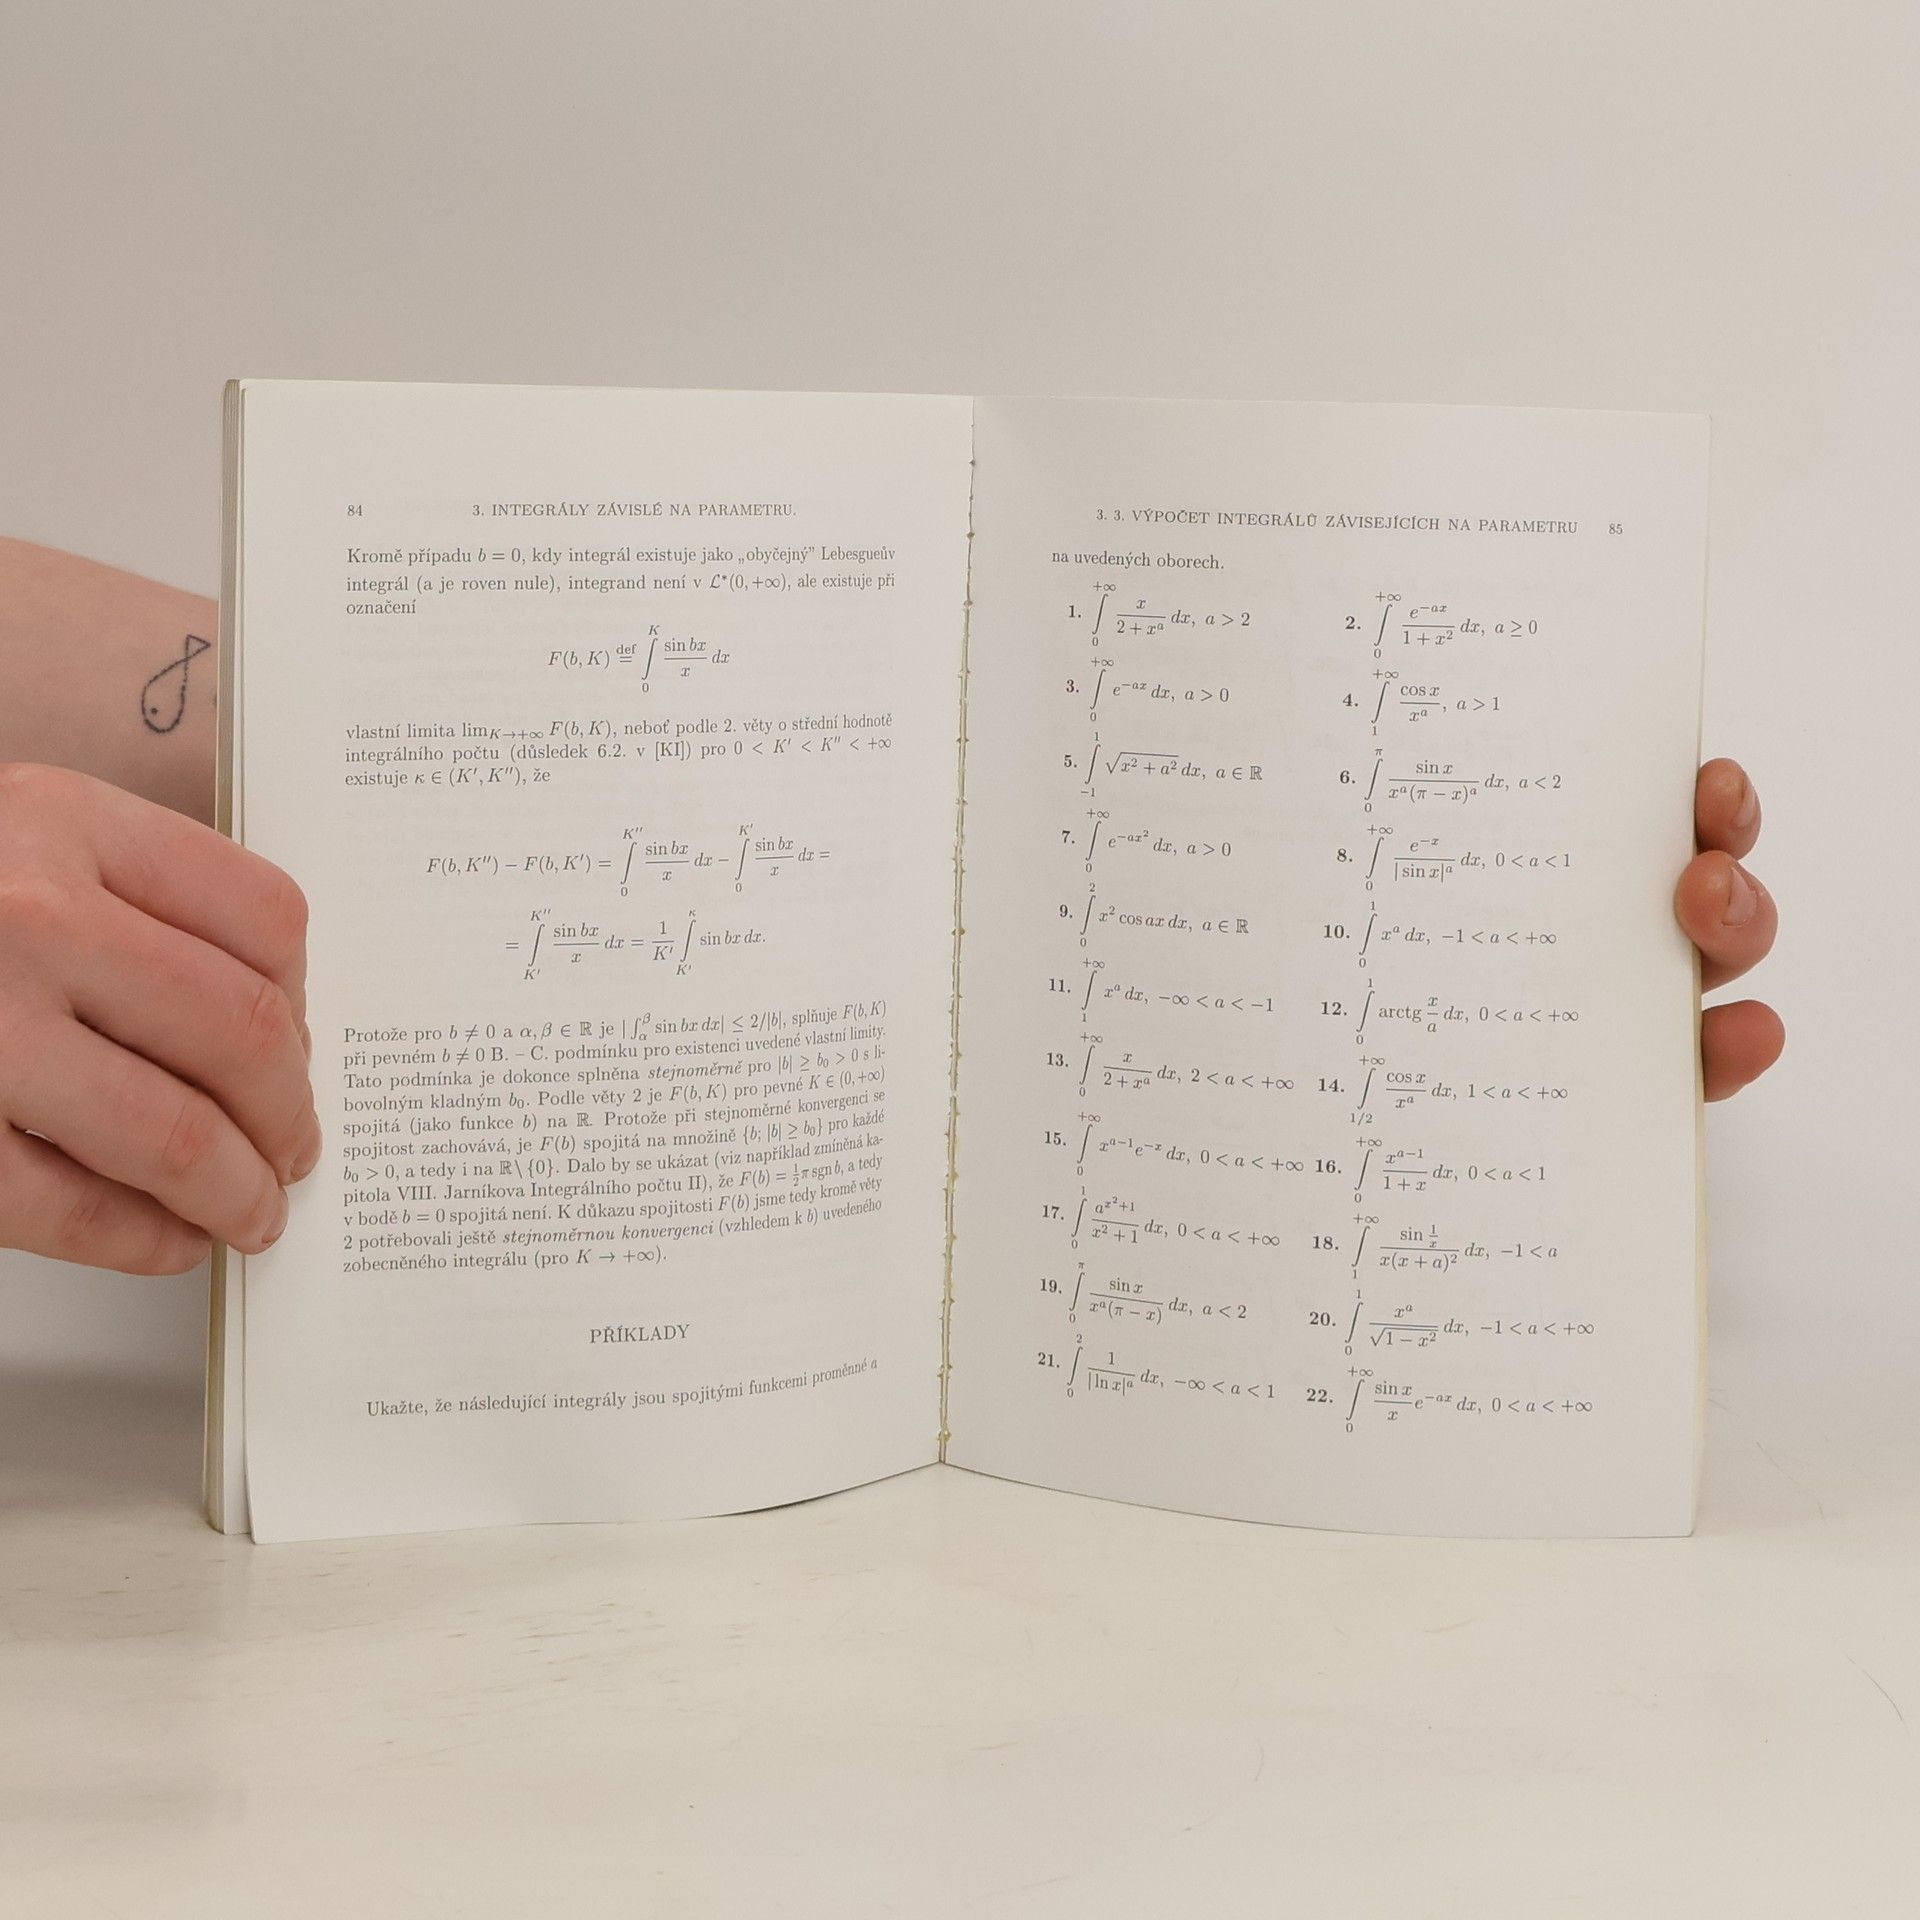 84 3. INTEGRÁLY ZÁVISLÉ NA PARAMETRU.
Kromě případu b = 0, kdy integrál existuje jako „obyčejný” Lebesgueův
integrál (a je roven nule), integrand není v ℒ*(0, +∞), ale existuje při
označení
F(b, K) def= ∫_0^K (sin bx)/x dx
vlastní limita lim_{K→+∞} F(b, K), neboť podle 2. věty o střední hodnotě
integrálního počtu (důsledek 6.2. v [KI]) pro 0 < K′ < K″ < +∞
existuje κ ∈ (K′, K″), že
F(b, K″) − F(b, K′) = ∫_0^{K″} (sin bx)/x dx − ∫_0^{K′} (sin bx)/x dx =
= ∫_{K′}^{K″} (sin bx)/x dx = 1/K′ ∫_{K′}^κ sin bx dx.
Protože pro b ≠ 0 a α, β ∈ ℝ je |∫_α^β sin bx dx| ≤ 2/|b|, splňuje F(b, K)
při pevném b ≠ 0 B. – C. podmínku pro existenci uvedené vlastní limity.
Tato podmínka je dokonce splněna stejnoměrně pro |b| ≥ b₀ > 0 s li-
bovolným kladným b₀. Podle věty 2 je F(b, K) pro pevné K ∈ (0, +∞)
spojitá (jako funkce b) na ℝ. Protože při stejnoměrné konvergenci se
spojitost zachovává, je F(b) spojitá na množině {b; |b| ≥ b₀} pro každé
b₀ > 0, a tedy i na ℝ \ {0}. Dalo by se ukázat (viz například zmíněná ka-
pitola VIII. Jarníkova Integrálního počtu II), že F(b) = ½π sgn b, a tedy
v bodě b = 0 spojitá není. K důkazu spojitosti F(b) jsme tedy kromě věty
2 potřebovali ještě stejnoměrnou konvergenci (vzhledem k b) uvedeného
zobecněného integrálu (pro K → +∞).
PŘÍKLADY
Ukažte, že následující integrály jsou spojitými funkcemi proměnné a
3. 3. VÝPOČET INTEGRÁLŮ ZÁVISEJÍCÍCH NA PARAMETRU 85
na uvedených oborech.
1. ∫_0^{+∞} x/(2 + x^a) dx, a > 2
2. ∫_0^{+∞} e^{−ax}/(1 + x²) dx, a ≥ 0
3. ∫_0^{+∞} e^{−ax} dx, a > 0
4. ∫_1^{+∞} (cos x)/x^a, a > 1
5. ∫_{−1}^1 √(x² + a²) dx, a ∈ ℝ
6. ∫_0^π (sin x)/(x^a(π − x)^a) dx, a < 2
7. ∫_0^{+∞} e^{−ax²} dx, a > 0
8. ∫_0^{+∞} e^{−x}/|sin x|^a dx, 0 < a < 1
9. ∫_0^2 x² cos ax dx, a ∈ ℝ
10. ∫_0^1 x^a dx, −1 < a < +∞
11. ∫_1^{+∞} x^a dx, −∞ < a < −1
12. ∫_0^1 arctg x/a dx, 0 < a < +∞
13. ∫_0^{+∞} x/(2 + x^a) dx, 2 < a < +∞
14. ∫_{1/2}^{+∞} (cos x)/x^a dx, 1 < a < +∞
15. ∫_0^{+∞} x^{a−1}e^{−x} dx, 0 < a < +∞
16. ∫_0^{+∞} x^{a−1}/(1 + x) dx, 0 < a < 1
17. ∫_0^1 a^{x²+1}/(x² + 1) dx, 0 < a < +∞
18. ∫_1^{+∞} (sin 1/x)/(x(x + a)²) dx, −1 < a
19. ∫_0^π (sin x)/(x^a(π − x)) dx, a < 2
20. ∫_0^1 x^a/√(1 − x²) dx, −1 < a < +∞
21. ∫_0^2 1/|ln x|^a dx, −∞ < a < 1
22. ∫_0^{+∞} (sin x)/x e^{−ax} dx, 0 < a < +∞